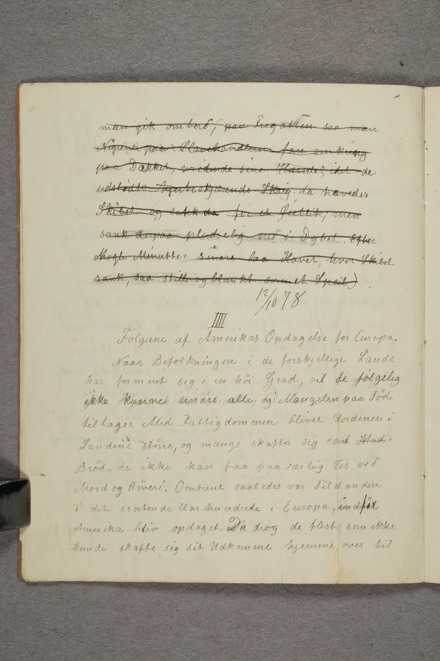 man gik ombord, paa Fregatten saa man
Negerne paa Slavehandleren fare omkring
paa Dækket, vridende sine Hænder, idet de
udstødte hjerteskjærende Skrig. da hævedes
Skibet og sakk da for et Øieblik, men
sank derpaa pludselig ned i Dybet. Efter
Nogle Minutter senere laa Havet, hvor Skibet
sank, saa stille og blankt som et Speil)
12/10 78
IIII
Følgerne af Amerikas Opdagelse for Europa.
Naar Befolkningen i de forskjellige Lande
har formeret sig i en høi Grad, vil de følgelig
ikke kjunne ernære alle, og Mangelen paa Føde
tiltager. Med Fattigdommen bliver Uordenen i
Landene større, og mange skaffer sig det
Brød, de ikke kan faa paa ærlig Vis ved
Mord og Røveri. Omtrent saaledes var Tilstanden
i det sextende Aarhundrede i Europa, indtil
Amerika blev opdaget. Da drog de fleste, som ikke
kunde skaffe sig sit Udkomme hjemme, over til